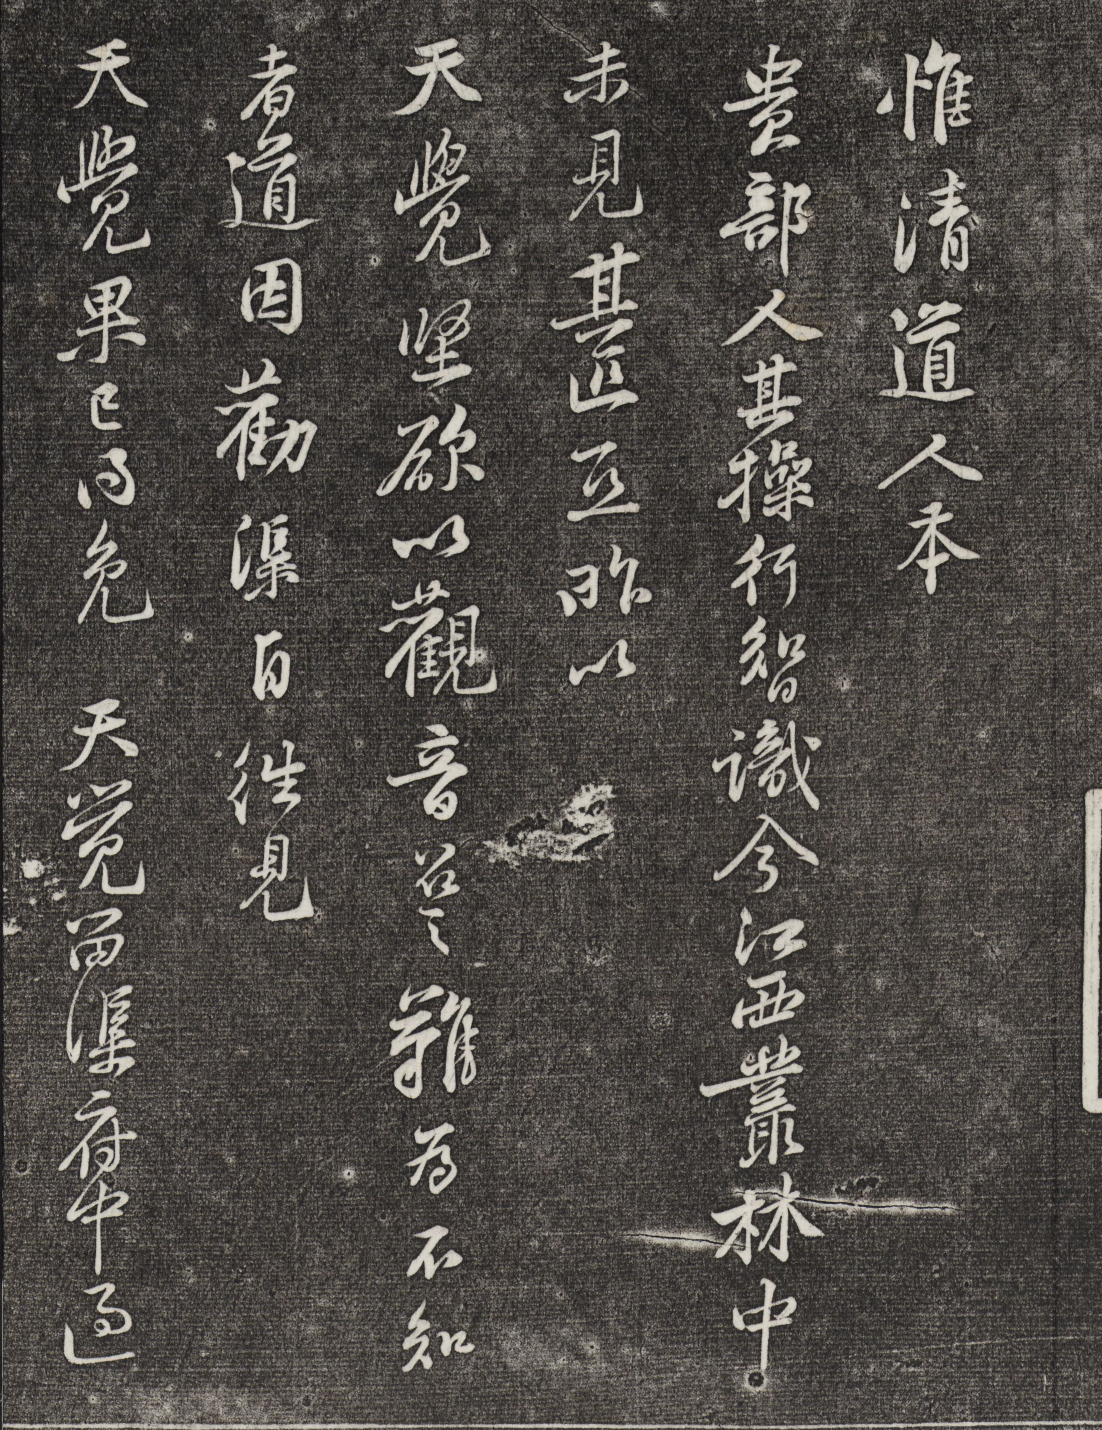 惟清道人本
貴部人其操行智識今江西叢林中
未見其匹亘昨以
天覺堅欲以觀音召之難為不知
者道因勸渠自往見
天覺果已得免 天覺留渠府中過